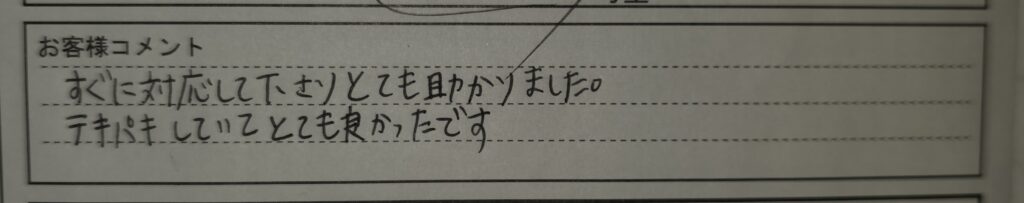 お客様コメント
すぐに対応して下さりとても助かりました。
テキパキしていてとても良かったです